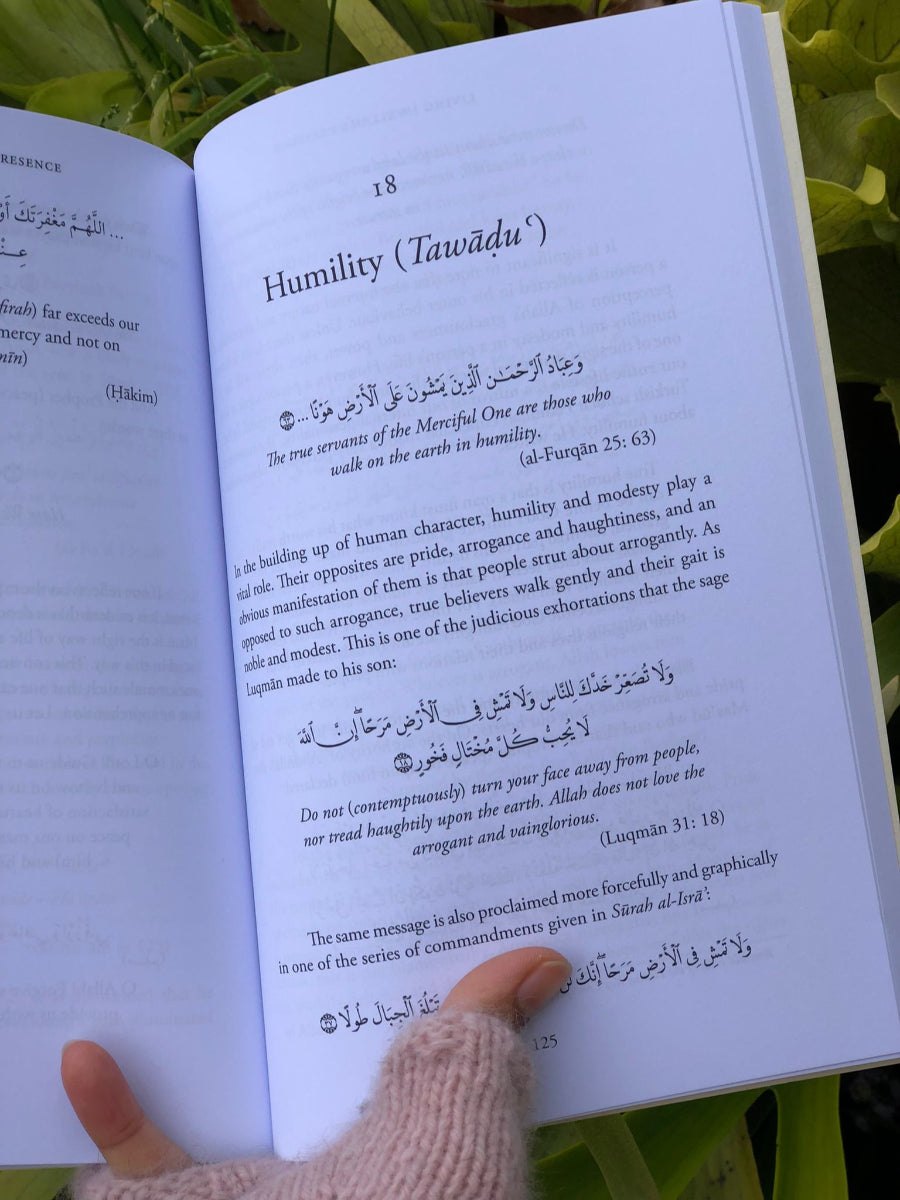 RESENCE
... اللَّهُمَّ مَغْفِرَتَكَ
firah) far exceeds our
mercy and not on
nīn)
(Ḥākim)
18
Humility (Tawāḍuʿ)
وَعِبَادُ ٱلرَّحْمَـٰنِ ٱلَّذِينَ يَمْشُونَ عَلَى ٱلْأَرْضِ هَوْنًا... ۝٦٣
The true servants of the Merciful One are those who
walk on the earth in humility.
(al-Furqān 25: 63)
In the building up of human character, humility and modesty play a
vital role. Their opposites are pride, arrogance and haughtiness, and an
obvious manifestation of them is that people strut about arrogantly. As
opposed to such arrogance, true believers walk gently and their gait is
noble and modest. This is one of the judicious exhortations that the sage
Luqmān made to his son:
وَلَا تُصَعِّرْ خَدَّكَ لِلنَّاسِ وَلَا تَمْشِ فِى ٱلْأَرْضِ مَرَحًا ۖ إِنَّ ٱللَّهَ
لَا يُحِبُّ كُلَّ مُخْتَالٍ فَخُورٍ ۝١٨
Do not (contemptuously) turn your face away from people,
nor tread haughtily upon the earth. Allah does not love the
arrogant and vainglorious.
(Luqmān 31: 18)
The same message is also proclaimed more forcefully and graphically
in one of the series of commandments given in Sūrah al-Isrāʾ:
وَلَا تَمْشِ فِى ٱلْأَرْضِ مَرَحًا ۖ إِنَّكَ
تَبْلُغَ ٱلْجِبَالَ طُولًا ۝٣٧
125